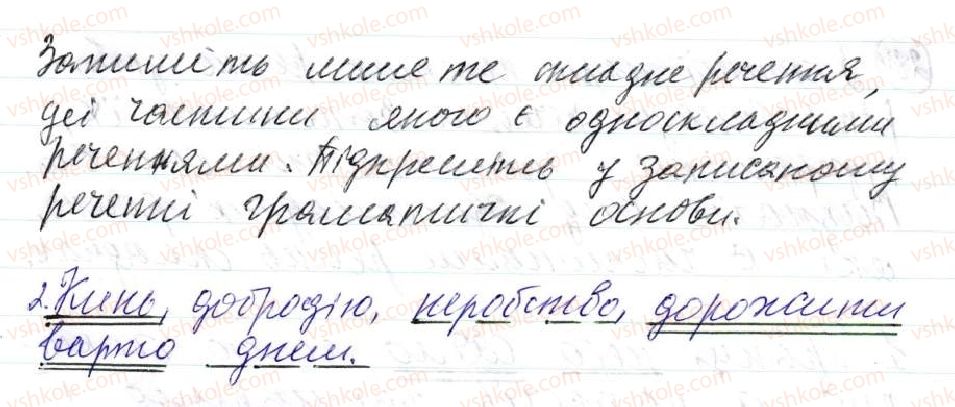 Запишіть лише те складне речення,
дві частини якого є односкладними
реченнями. Підкресліть у записаному
реченні граматичні основи.
2. Кинь, добродію, неробство, дорожити
варто днем.